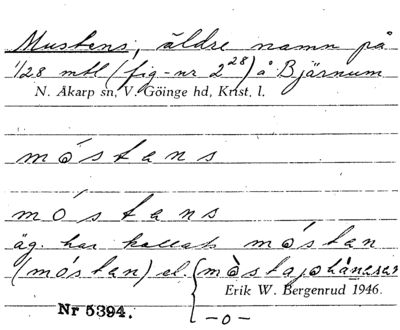 Mustens, äldre namn på
1/28 mtl (fig-nr 2²⁸) å Bjärnum
N. Åkarp sn, V. Göinge hd, Krist. l.
móstans
móstans
äg. har kallats móstan
(móstan) el. {mòstajohánesen
Erik W. Bergenrud 1946.
Nr 5394.
-o-